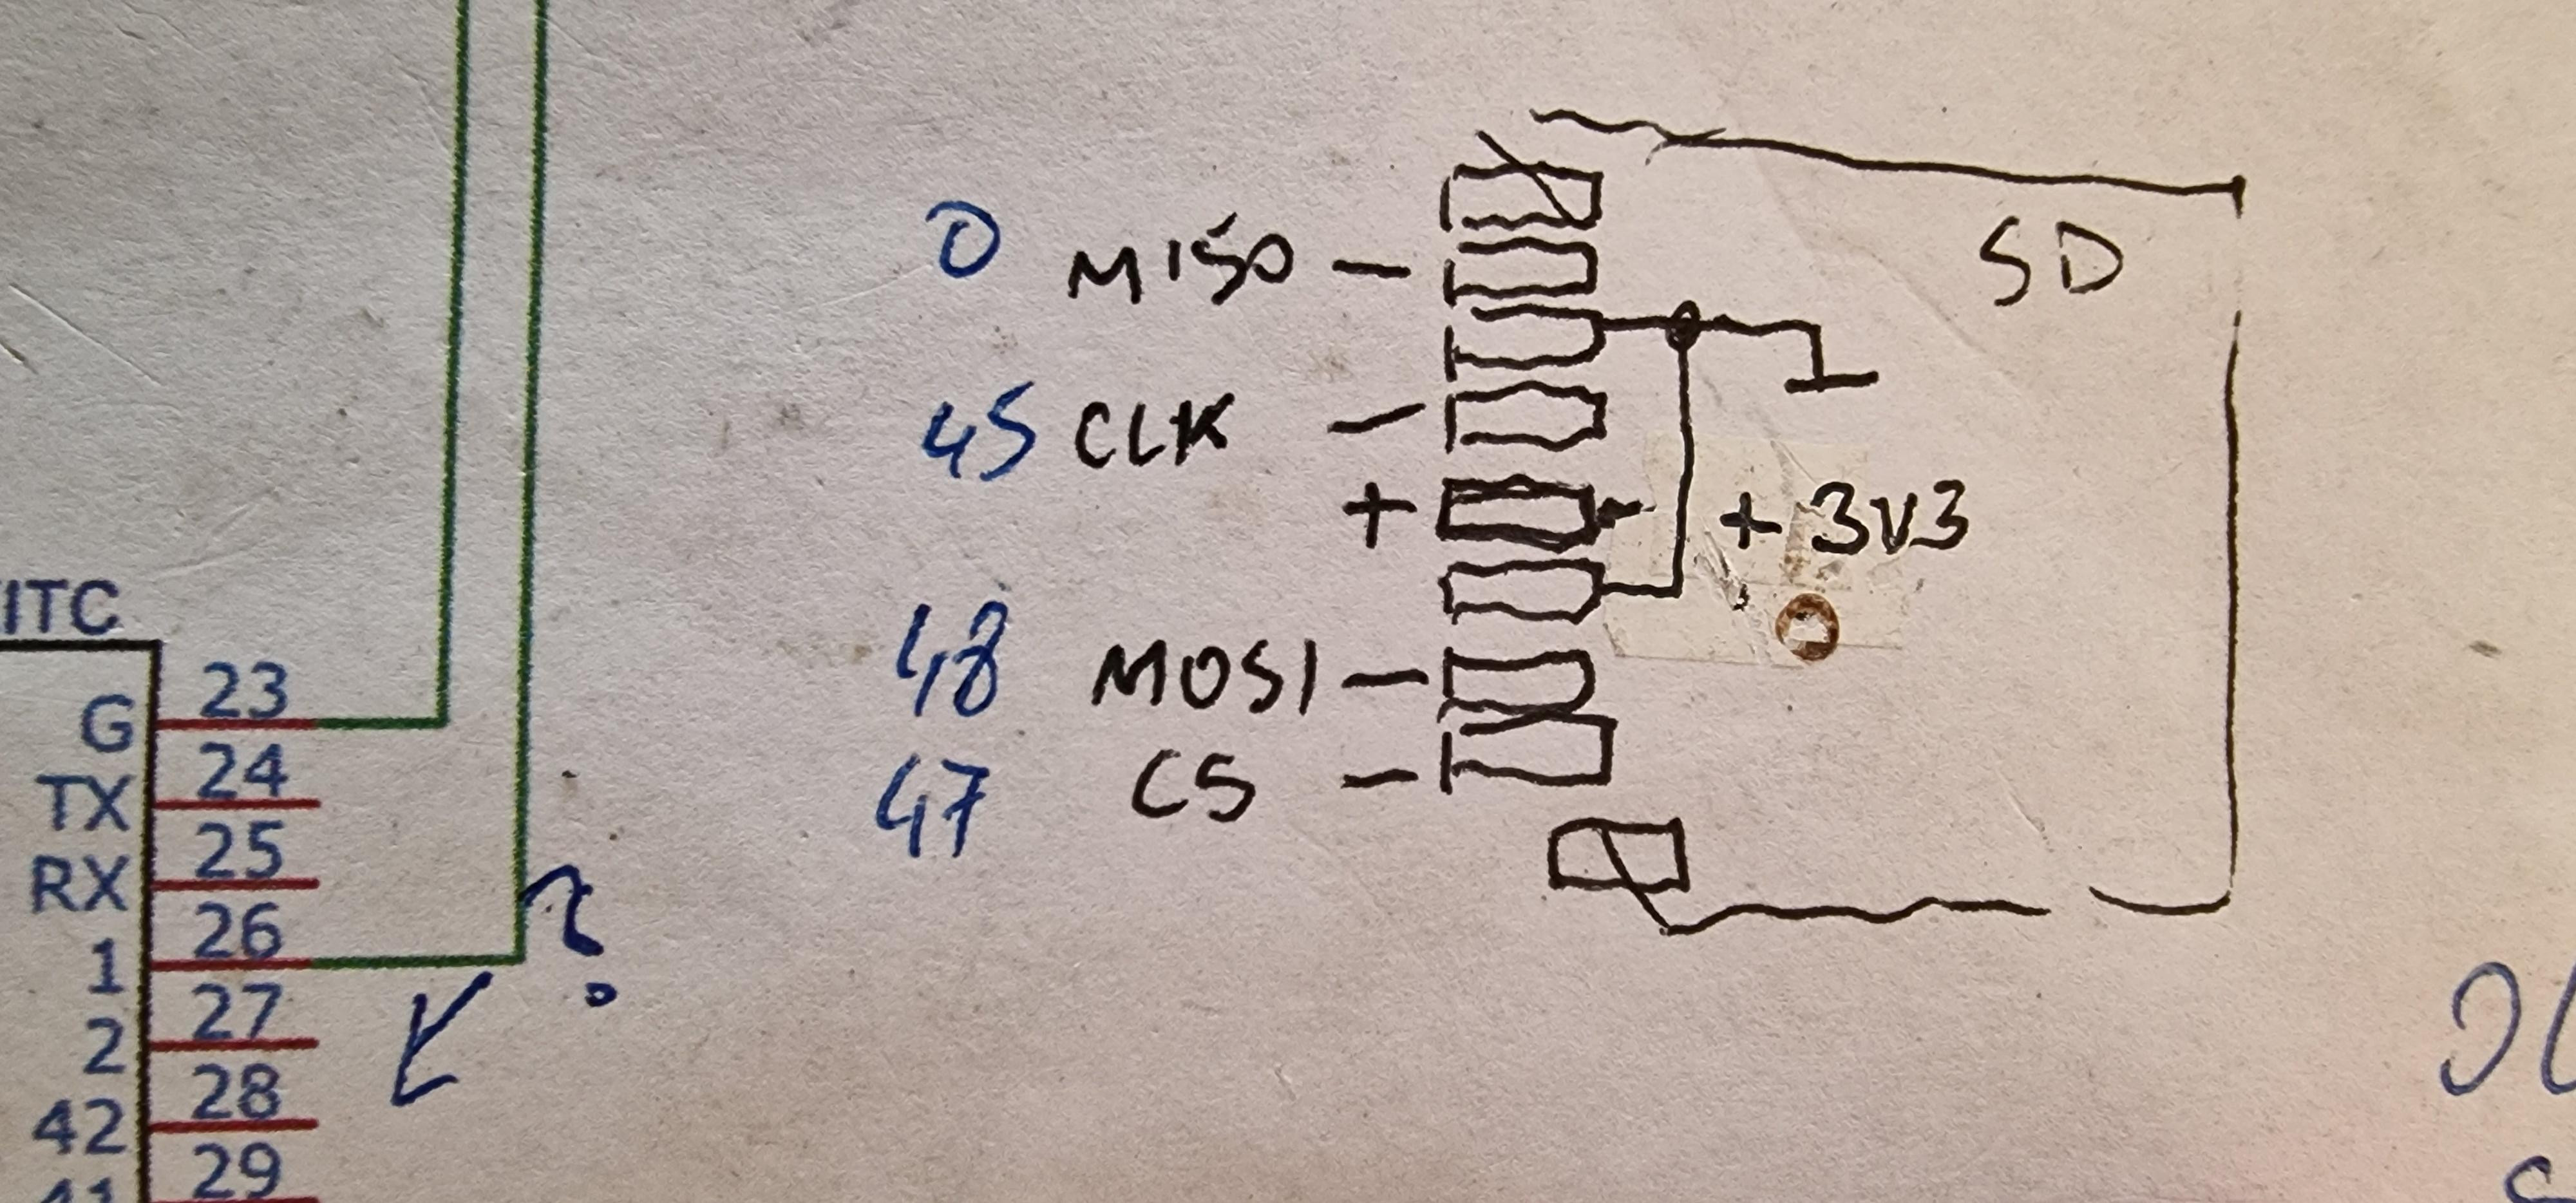 SD
0 MISO -
45 CLK -
+ +3V3
48 MOSI -
47 CS -
ITC
G 23
TX 24
RX 25
1 26
?
2 27
42 28
41 29